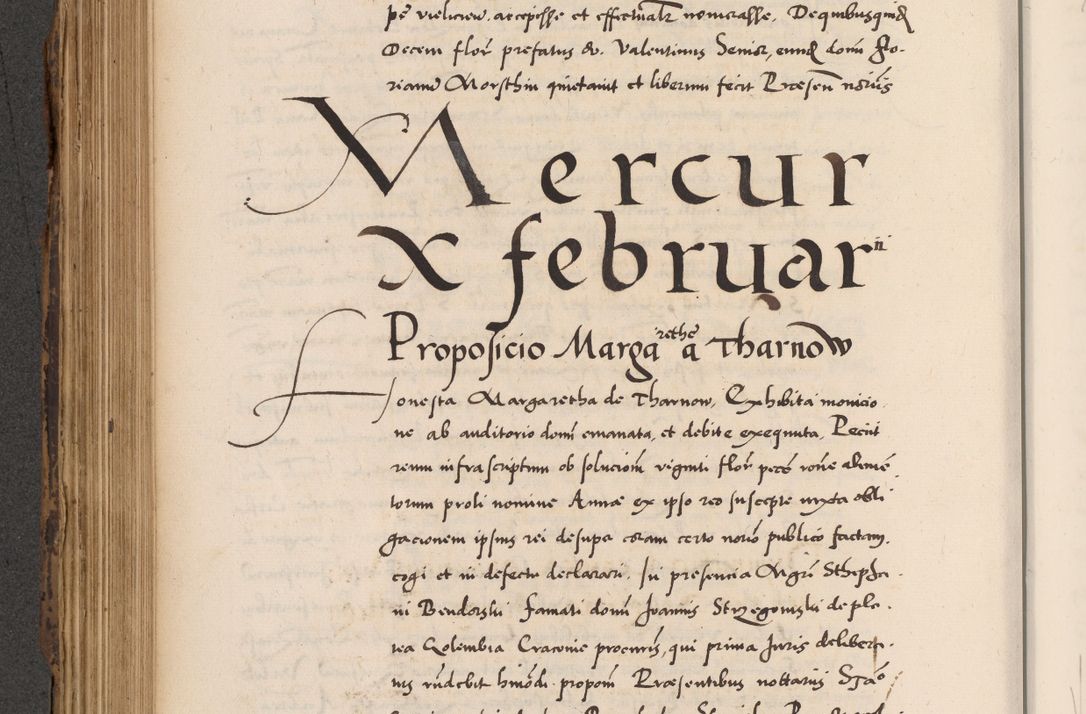 pe vielicieñ. accepisse et effectualr nominasse. De quibusquid
Decem flor prefatus d. Valentinus Senior, eund dom Flo-
rianu Morsthin quietauit et liberum fecit Præsen
Mercur
X februarii
Proposicio Margarethe a Tharnow
Honesta Margaretha de Tharnow, Exhibita monicio
ne ab auditorio domi emanata, et debite exequuta, Peciit
reum infrascriptum ob solucioni viginti flor pecu rone alimē
torum proli nomine Annæ ex ipso reo suscepte iuxta obli
gacionem ipsius rei desupa coram certo notō publico factam.
cogi et in defectu declarari. In presencia Mgri Stepha
ni Bendorski famati domi Ioannis Strzegomski de ple
tea Colembia Cracouie procuris, qui prima Iuris delibera
tus rūdebit hmōdi proponi Præsentibus nottariis Stāo